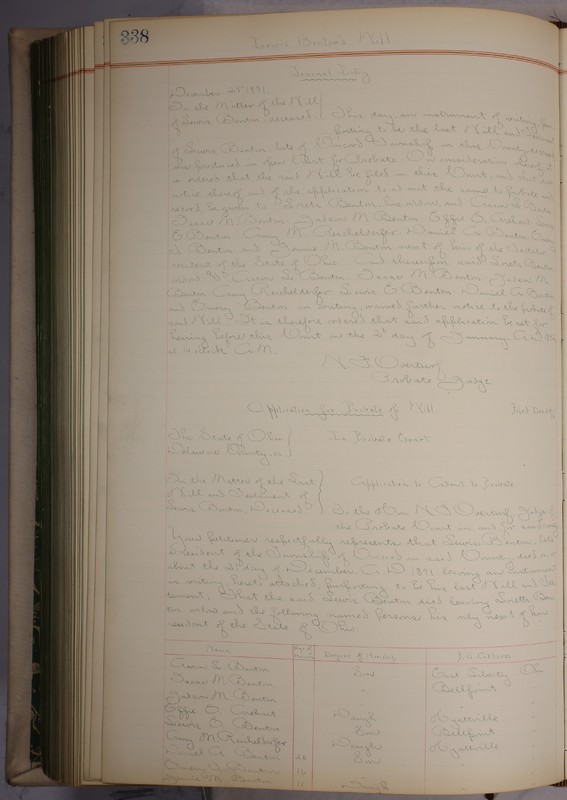 338
Lewis Benton's Will
Journal Entry
December 23 1891.
In the Matter of the Will
of Lewis Benton deceased
This day an instrument of writing pur-
porting to be the last Will and Testament
of Lewis Benton late of Concord Township in this County deceased
was produced in open Court for Probate. On consideration whereof it
is ordered that the said Will be filed in this Court, and that due
notice thereof and of the application to admit the same to probate and
record be given to Loretta Benton, his widow, and
Isaac M. Benton Jason M. Benton Effie O. Lewis
E Benton Amy M. Reichelderfer Daniel A. Benton
Benton and M. Benton next of kin of the testator
resident of the State of Ohio. And thereupon said Loretta Benton
widow S. Benton Isaac M. Benton Jason M.
Benton Amy Reichelderfer Lewis E Benton Daniel A. Benton
and Benton in writing, waived further notice to the probate of
said Will. It is therefore ordered that said application be set for
hearing before this Court on the day of January A.D.
at 10 o'clock A.M.
N. F. Overturf
Probate Judge
Application for Probate of Will
The State of Ohio
Delaware County, ss
In Probate Court
In the Matter of the Last
Will and Testament of
Lewis Benton Deceased
Application to Admit to Probate
To the Hon N. F. Overturf, Judge of
the Probate Court in and for said County
Your petitioner respectfully represents that Lewis Benton, late
a resident of the Township of Concord in said County, died on or
about the day of December A. D. 1891 leaving an instrument
in writing, hereto attached, purporting to be his last Will and Tes-
tament. That the said Lewis Benton died leaving Loretta Ben-
ton widow and the following named persons his only next of kin
resident of the State of Ohio.
Name Degree of Kinship P.O. Address
S. Benton Son East Liberty Ohio
Isaac M. Benton " Bellpoint
Jason M. Benton
Effie O. Daugh Hyattville
Lewis E. Benton Son Bellpoint
Amy M. Reichelderfer Daugh Hyattville
Daniel A. Benton 20 Son
Benton 16
M. Benton 11 Daugh